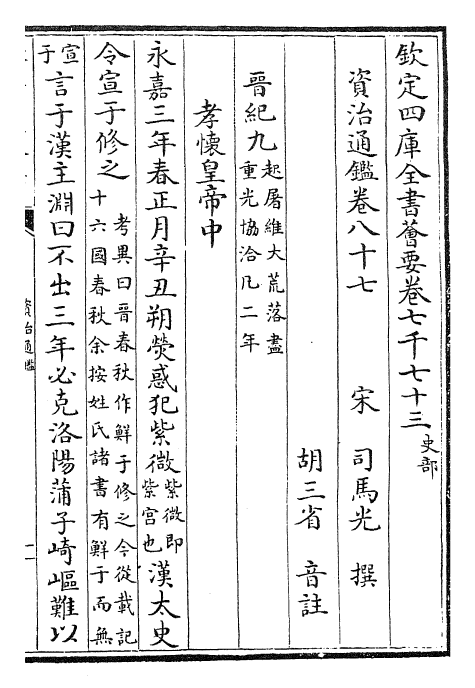 欽定四庫全書薈要卷七千七十三史部
資治通鑑卷八十七
宋 司馬光 撰
胡三省 音註
晉紀九起屠維大荒落盡重光協洽凡二年
孝懷皇帝中
永嘉三年春正月辛丑朔熒惑犯紫微紫微即紫宮也漢太史
令宣于修之考異曰晉春秋作鮮于修之今從載記十六國春秋余按姓氏諸書有鮮于而無
宣于言于漢主淵曰不出三年必克洛陽蒲子崎嶇難以
資治通鑑
一